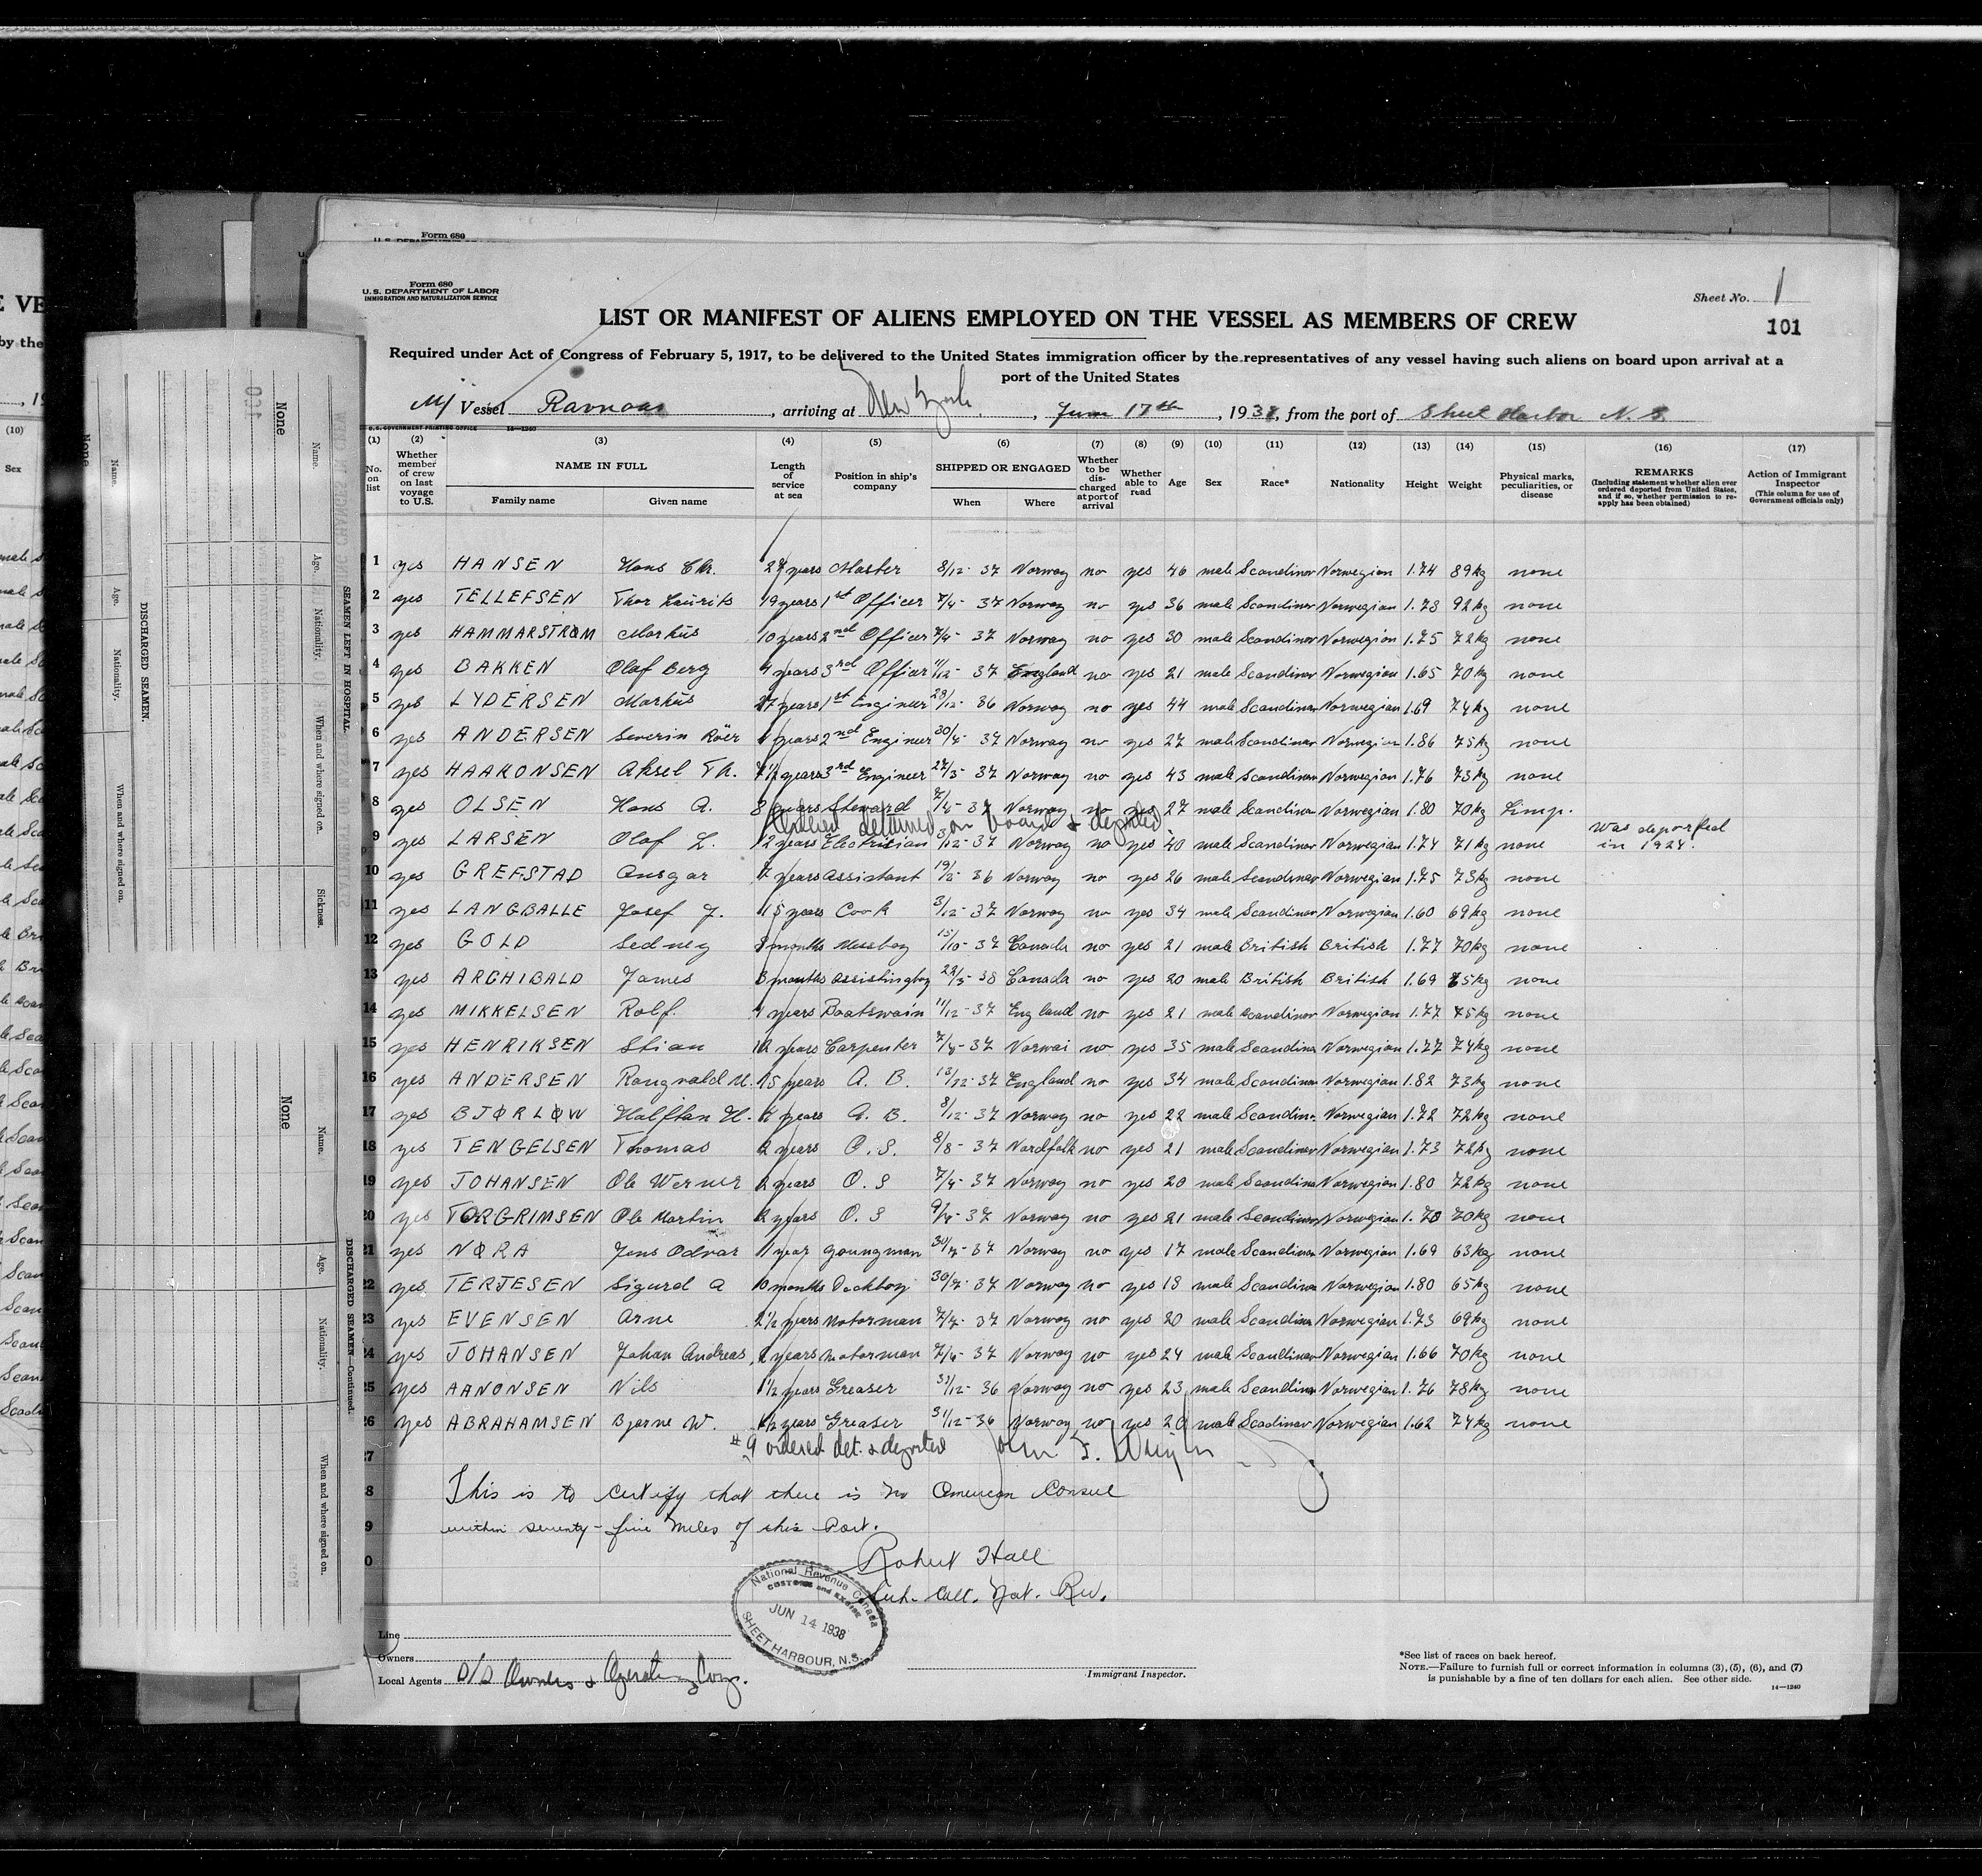 Form 680
U. S. DEPARTMENT OF LABOR
IMMIGRATION AND NATURALIZATION SERVICE
Sheet No. 1
101
LIST OR MANIFEST OF ALIENS EMPLOYED ON THE VESSEL AS MEMBERS OF CREW
Required under Act of Congress of February 5, 1917, to be delivered to the United States immigration officer by the representatives of any vessel having such aliens on board upon arrival at a
port of the United States
Vessel Ravnaas, arriving at New York, June 17th, 1938, from the port of Sheet Harbor N. S.
(1) (2) (3) (4) (5) (6) (7) (8) (9) (10) (11) (12) (13) (14) (15) (16) (17)
No. on list
Whether member of crew on last voyage to U.S.
NAME IN FULL
Family name
Given name
Length of service at sea
Position in ship's company
SHIPPED OR ENGAGED
When
Where
Whether to be discharged at port of arrival
Whether able to read
Age
Sex
Race*
Nationality
Height
Weight
Physical marks, peculiarities, or disease
REMARKS
(Including statement whether alien ever ordered deported from United States, and if so, whether permission to reapply has been obtained)
Action of Immigrant Inspector
(This column for use of Government officials only)
1 yes HANSEN Hans Chr. years Master 8/12- 37 Norway no yes 46 male Scandinav Norwegian 1.74 89kg none
2 yes TELLEFSEN Thor Laurits 19 years 1st Officer 7/4- 37 Norway no yes 36 male Scandinav Norwegian 1.78 92kg none
3 yes HAMMARSTRØM Markus 10 years 2nd Officer 7/4- 37 Norway no yes 30 male Scandinav Norwegian 1.75 72kg none
4 yes BAKKEN Olaf Berg 4 years 3rd Officer 11/12- 37 England no yes 21 male Scandinav Norwegian 1.65 70kg none
5 yes LYDERSEN Markus years 1st Engineer 28/12- 36 Norway no yes 44 male Scandinav Norwegian 1.69 74kg none
6 yes ANDERSEN Severin Röer years 2nd Engineer 30/4- 37 Norway no yes 27 male Scandinav Norwegian 1.86 75kg none
7 yes HAAKONSEN Aksel Th. years 3rd Engineer 27/3- 37 Norway no yes 43 male Scandinav Norwegian 1.76 73kg none
8 yes OLSEN Hans A. 8 years Steward 7/4- 37 Norway no yes 27 male Scandinav Norwegian 1.80 70kg Limp.
Ordered detained on board & deported
9 yes LARSEN Olaf L. 12 years Electrician 3/12- 37 Norway no yes 40 male Scandinav Norwegian 1.74 71kg none Was deported in 1924.
10 yes GREFSTAD Ansgar years Assistant 36 Norway no yes 26 male Scandinav Norwegian 1.75 73kg none
11 yes LANGBALLE Josef J. 15 years Cook 3/12- 37 Norway no yes 34 male Scandinav Norwegian 1.60 69kg none
12 yes GOLD Sedney 8 months Messboy 15/10- 37 Canada no yes 21 male British British 1.77 70kg none
13 yes ARCHIBALD James 3 months Assistingboy 22/3- 38 Canada no yes 20 male British British 1.69 65kg none
14 yes MIKKELSEN Rolf. 4 years Boatswain 11/12- 37 England no yes 21 male Scandinav Norwegian 1.77 75kg none
15 yes HENRIKSEN Stian years Carpenter 7/4- 37 Norwai no yes 35 male Scandina Norwegian 1.77 74kg none
16 yes ANDERSEN Rangvald M. 15 years A. B. 13/12- 37 England no yes 34 male Scandina Norwegian 1.82 73kg none
17 yes BJØRLØW Halfdan H. 4 years A. B. 8/12- 37 Norway no yes 22 male Scandina. Norwegian 1.72 72kg none
18 yes TENGELSEN Thomas 2 years O. S. 8/8- 37 Nordfolk no yes 21 male Scandinav Norwegian 1.73 72kg none
19 yes JOHANSEN Ole Werner 2 years O. S 7/4- 37 Norway no yes 20 male Scandina Norwegian 1.80 72kg none
20 yes TORGRIMSEN Ole Martin 2 years O. S 9/4- 37 Norway no yes 21 male Scandinav Norwegian 1.70 70kg none
21 yes NØRA Jens Odvar 1 year youngman 30/7- 37 Norway no yes 17 male Scandinav Norwegian 1.69 63kg none
22 yes TERJESEN Sigurd A 10 months Deckboy 30/7- 37 Norway no yes 18 male Scandina Norwegian 1.80 65kg none
23 yes EVENSEN Arne 2 1/2 years Motorman 7/4- 37 Norway no yes 20 male Scandina Norwegian 1.73 69kg none
24 yes JOHANSEN Johan Andreas 2 years Motorman 37 Norway no yes 24 male Scandinav Norwegian 1.66 70kg none
25 yes AANONSEN Nils 1 1/2 years Greaser 31/12- 36 Norway no yes 23 male Scandina Norwegian 1.76 78kg none
26 yes ABRAHAMSEN Bjarne W. 1 1/2 years Greaser 31/12- 36 Norway no yes 20 male Scadinav Norwegian 1.62 74kg none
27 #9 ordered det. & deported
This is to certify that there is no American Consul
within seventy-five miles of this Port.
Robert Hall
Sub. Coll. Nat. Rev.
National Revenue Canada
CUSTOMS and EXCISE
JUN 14 1938
SHEET HARBOUR, N.S.
Line
Owners
Local Agents D/S Owners & Operating Corp.
Immigrant Inspector.
*See list of races on back hereof.
NOTE.—Failure to furnish full or correct information in columns (3), (5), (6), and (7)
is punishable by a fine of ten dollars for each alien. See other side.
14—1240
DISCHARGED SEAMEN.
SEAMEN LEFT IN HOSPITAL.
DISCHARGED SEAMEN—Continued.
Name.
Age.
Nationality.
When and where signed on.
Sickness.
None
None